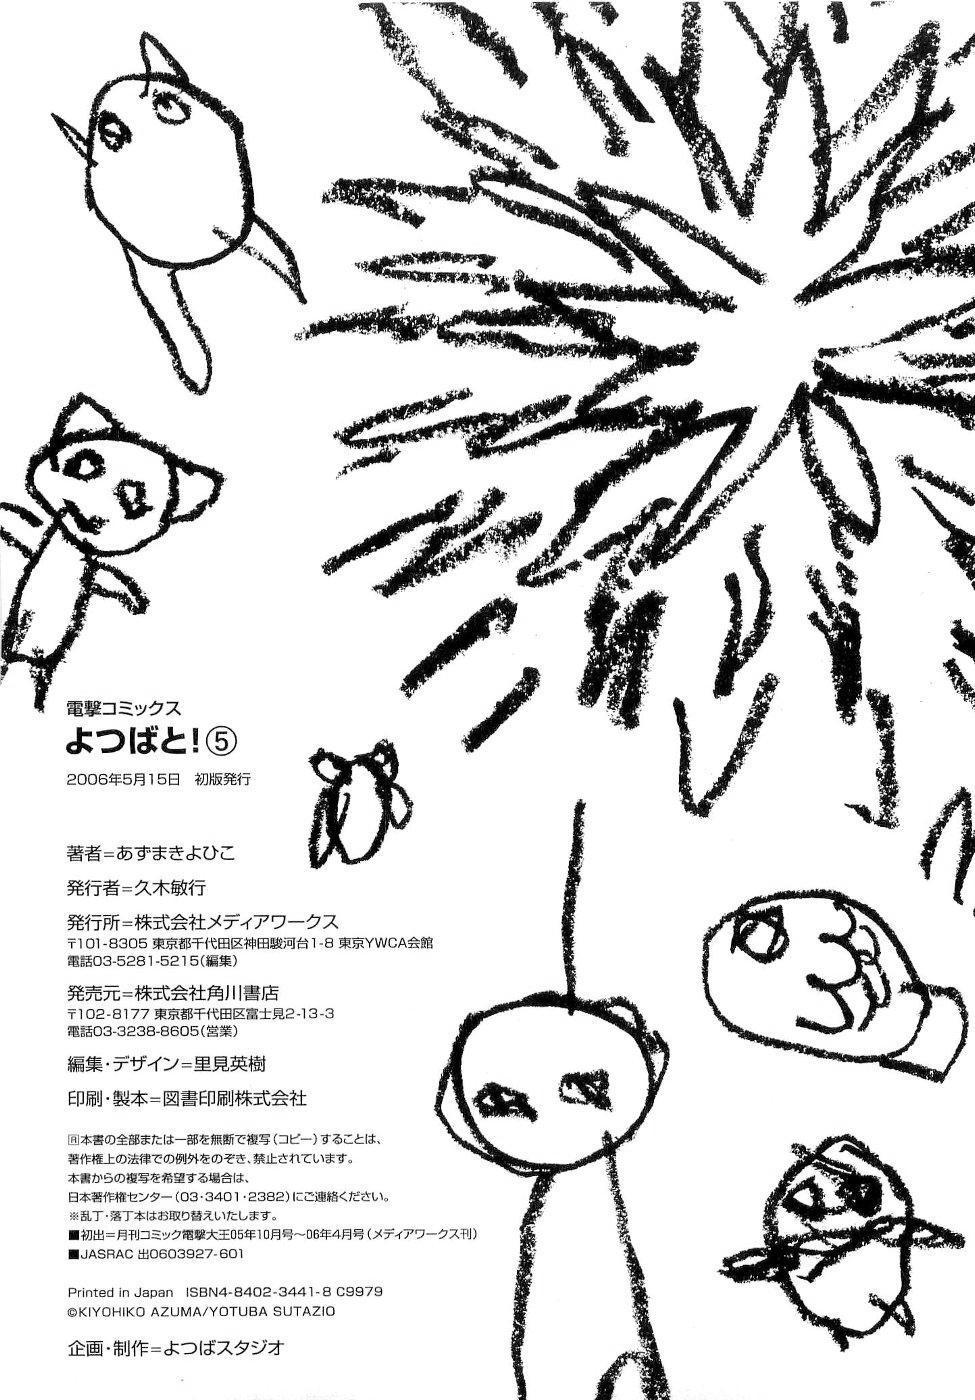 電撃コミックス
よつばと!⑤
2006年5月15日　初版発行
著者=あずまきよひこ
発行者=久木敏行
発行所=株式会社メディアワークス
〒101-8305 東京都千代田区神田駿河台1-8 東京YWCA会館
電話03-5281-5215(編集)
発売元=株式会社角川書店
〒102-8177 東京都千代田区富士見2-13-3
電話03-3238-8605(営業)
編集・デザイン=里見英樹
印刷・製本=図書印刷株式会社
🄁本書の全部または一部を無断で複写(コピー)することは、
著作権上の法律での例外をのぞき、禁止されています。
本書からの複写を希望する場合は、
日本著作権センター(03・3401・2382)にご連絡ください。
※乱丁・落丁本はお取り替えいたします。
■初出=月刊コミック電撃大王05年10月号〜06年4月号(メディアワークス刊)
■JASRAC 出0603927-601
Printed in Japan ISBN4-8402-3441-8 C9979
©KIYOHIKO AZUMA/YOTUBA SUTAZIO
企画・制作=よつばスタジオ